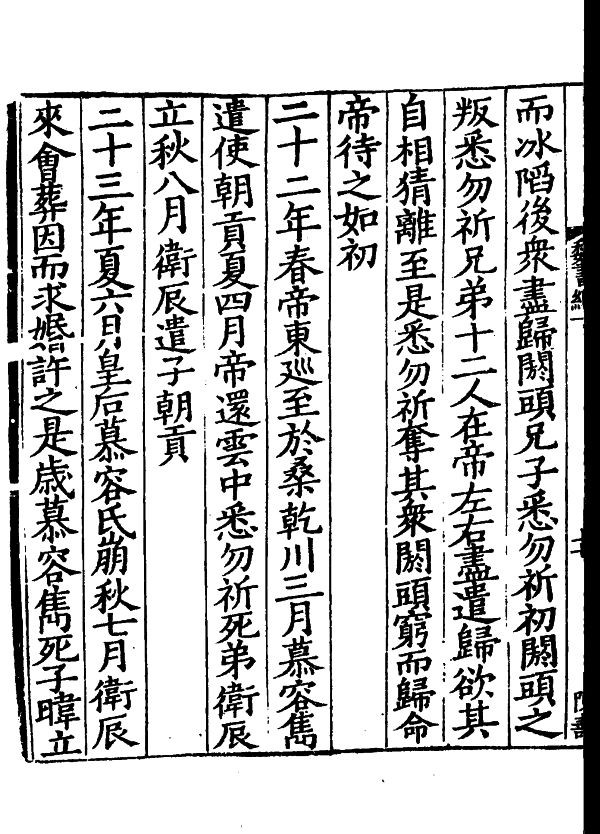 而冰陷後衆盡歸閼頭兄子悉勿祈初閼頭之
叛悉勿祈兄弟十二人在帝左右盡遣歸欲其
自相猜離至是悉勿祈奪其衆閼頭窮而歸命
帝待之如初
二十二年春帝東巡至於桑乾川三月慕容雋
遣使朝貢夏四月帝還雲中悉勿祈死弟衛辰
立秋八月衛辰遣子朝貢
二十三年夏六月皇后慕容氏崩秋七月衛辰
來會葬因而求婚許之是歲慕容雋死子暐立